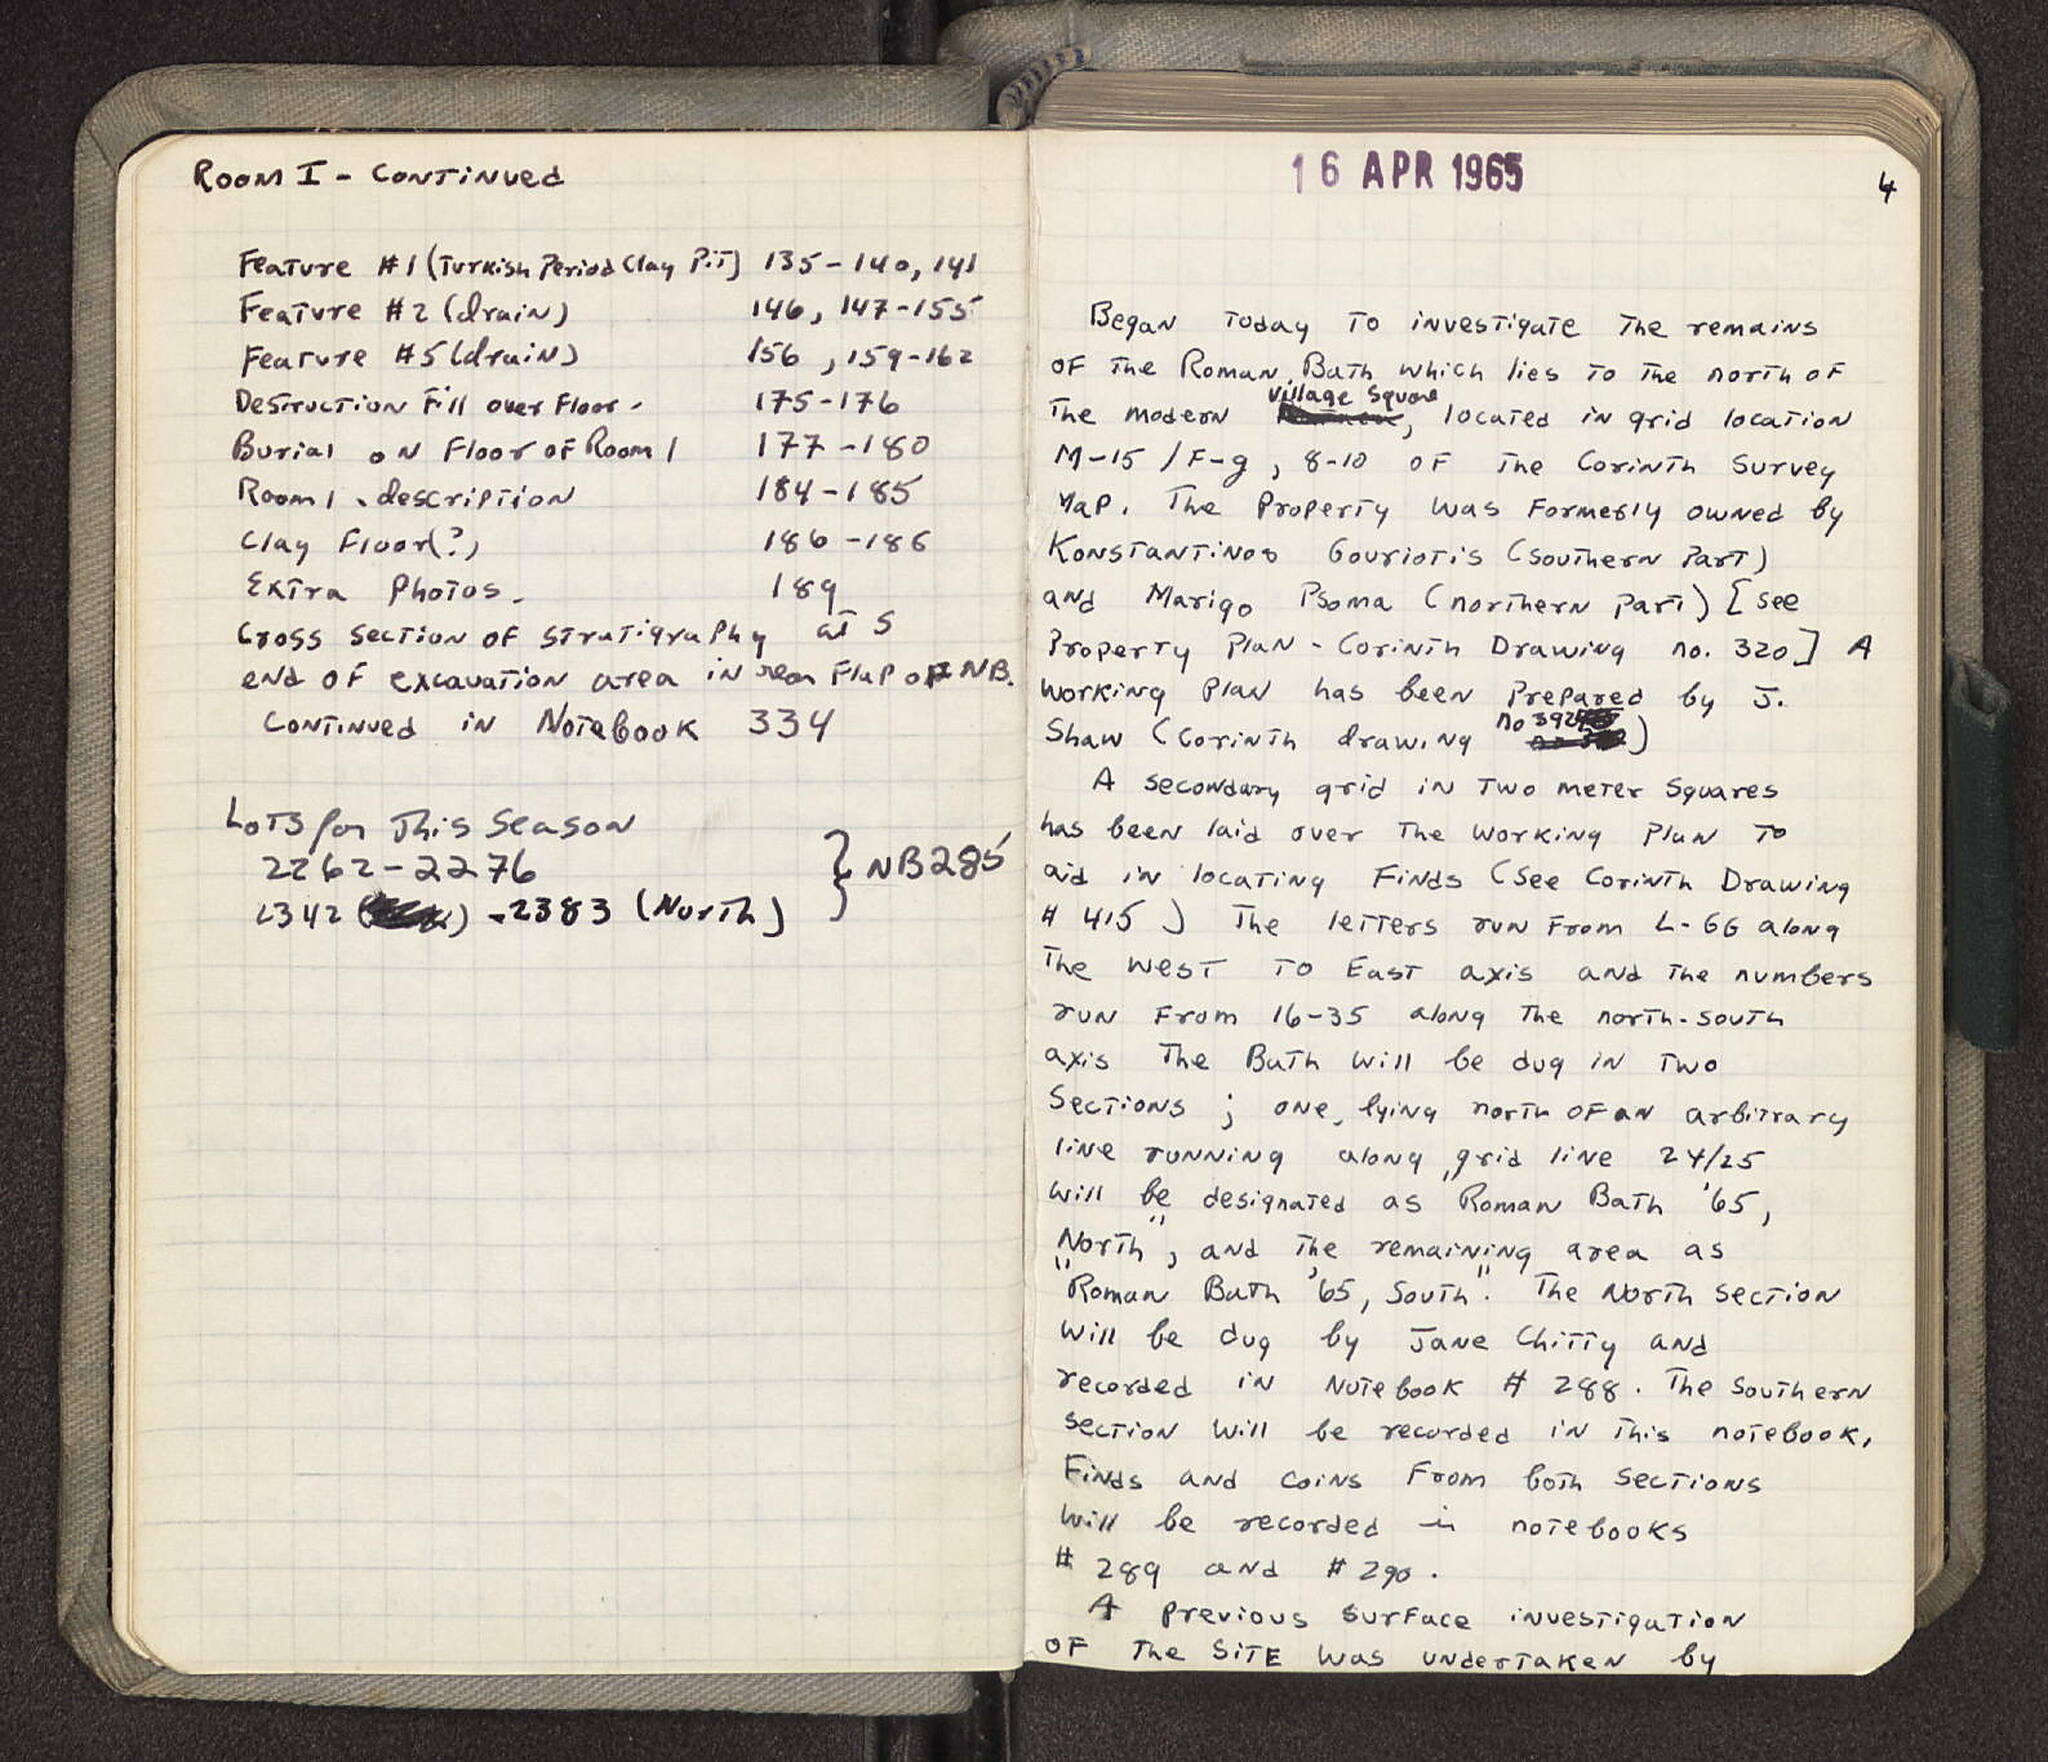 Room I - Continued
Feature #1 (Turkish Period Clay Pit) 135-140, 141
Feature #2 (drain) 146, 147-155
Feature #5 (drain) 156, 159-162
Destruction Fill over Floor. 175-176
Burial on Floor of Room 1 177-180
Room 1. description 184-185
Clay Floor(?) 186-186
Extra Photos. 189
Cross section of stratigraphy at S
end of excavation area in rear Flap of NB.
Continued in Notebook 334
Lots for This Season
2262-2276
2342 ( ) -2383 (North) } NB285
16 APR 1965
4
Began today to investigate the remains
of the Roman Bath which lies to the north of
the modern village square, located in grid location
M-15 / F-g, 8-10 of the Corinth Survey
Map. The Property was formerly owned by
Konstantinos Gouriotis (Southern Part)
and Marigo Psoma (northern part) [see
Property Plan - Corinth Drawing no. 320] A
working plan has been prepared by J.
Shaw (Corinth drawing no 392)
A secondary grid in two meter squares
has been laid over the working plan to
aid in locating finds (See Corinth Drawing
# 415) The letters run from L-GG along
the west to East axis and the numbers
run from 16-35 along the north-south
axis The Bath will be dug in two
Sections; one, lying north of an arbitrary
line running along grid line 24/25
will be designated as "Roman Bath '65,
North", and the remaining area as
"Roman Bath '65, South". The North section
will be dug by Jane Chitty and
recorded in Notebook # 288. The Southern
section will be recorded in this notebook.
Finds and coins from both sections
will be recorded in notebooks
# 289 and # 290.
A previous surface investigation
of the site was undertaken by